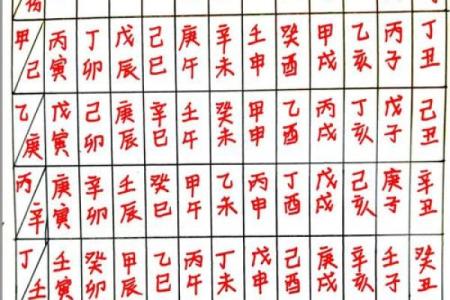 甲己 丙寅 丁卯 戊辰 己巳 庚午 辛未 壬申 癸酉 甲戌 乙亥 丙子 丁丑
乙庚 戊寅 己卯 庚辰 辛巳 壬午 癸未 甲申 乙酉 丙戌 丁亥 戊子 己丑
丙辛 庚寅 辛卯 壬辰 癸巳 甲午 乙未 丙申 丁酉 戊戌 己亥 庚子 辛丑
丁壬 壬寅 癸卯 甲辰 乙巳 丙午 丁未 戊申 己酉 庚戌 辛亥 壬子 癸丑